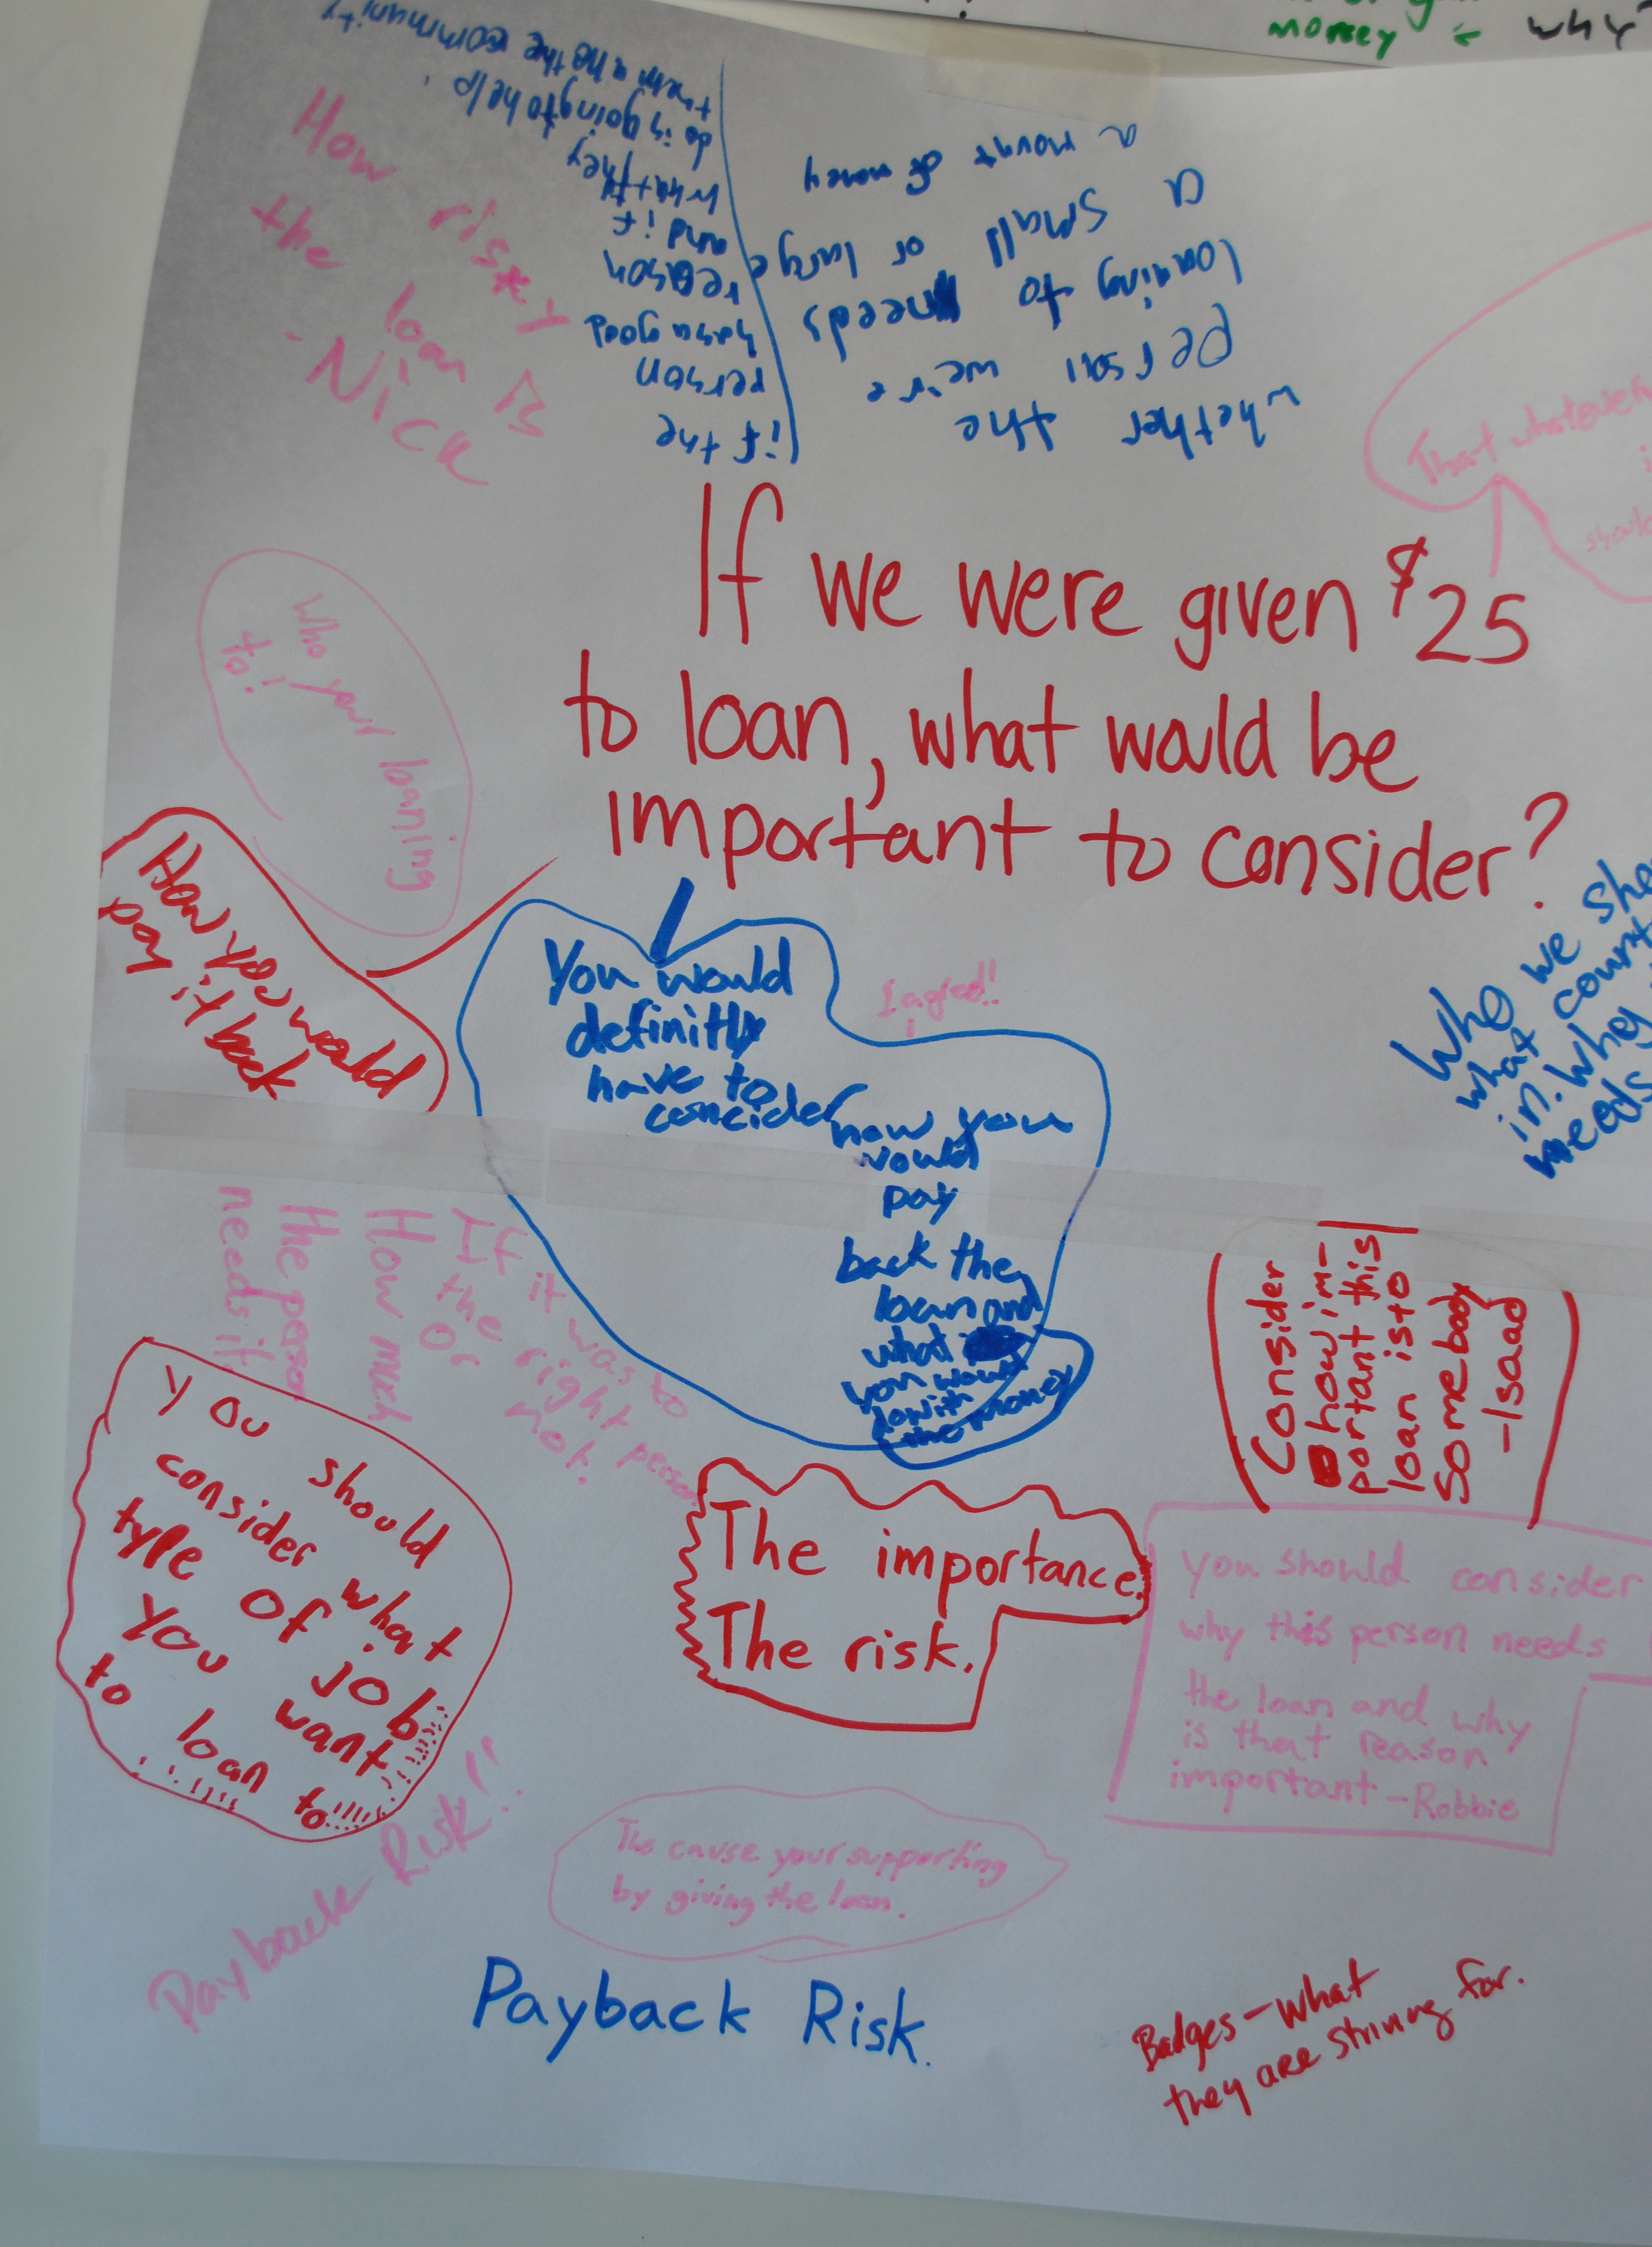 money & why?
whether the
person we're
loaning to needs
a small or large
a mount of money
if the
person
has a good
reason
and if
what they
do is going to help
them and the community
How riskey
the loan is
- Nick
That whatever
If we were given $25
to loan, what would be
important to consider?
Who your loaning
to!
How you would
pay it back
You would
definitly
have to
concider
how you
would
pay
back the
loan and
what
you would
do with
the money
I agree!!
Who we sho
what count
in. Why
needs
If it was to
the right person
or not.
How much
the person
needs it.
Consider
how im-
portant this
loan is to
somebody
- Isaad
You should
consider what
type of job
you want
to loan to
The importance.
The risk.
you should consider
why this person needs
the loan and why
is that reason
important - Robbie
Payback Risk!!
The cause your supporting
by giving the loan.
Payback Risk.
Badges - what
they are striving for.